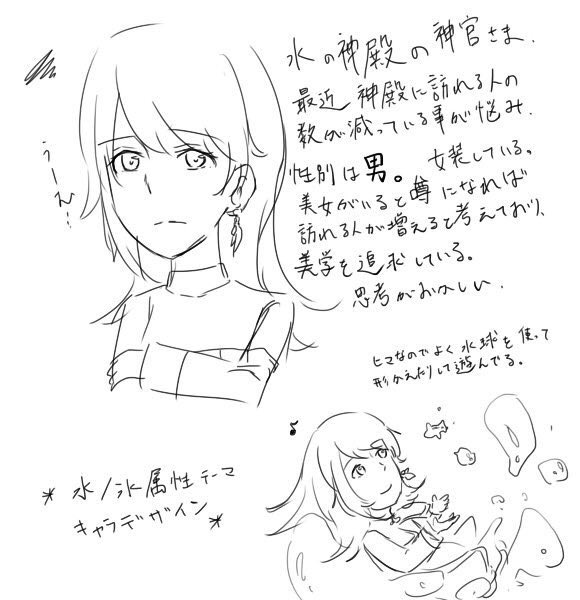 水の神殿の神官さま.
最近 神殿に訪れる人の
数が減っている事が悩み.
性別は男。女装している。
美女がいると噂になれば
訪れる人が増えると考えており、
美学を追求している。
思考がおかしい.
うーん…
ヒマなのでよく水球を使って
形かえたりして遊んでる。
♪
* 水/氷属性テーマ
キャラデザイン *